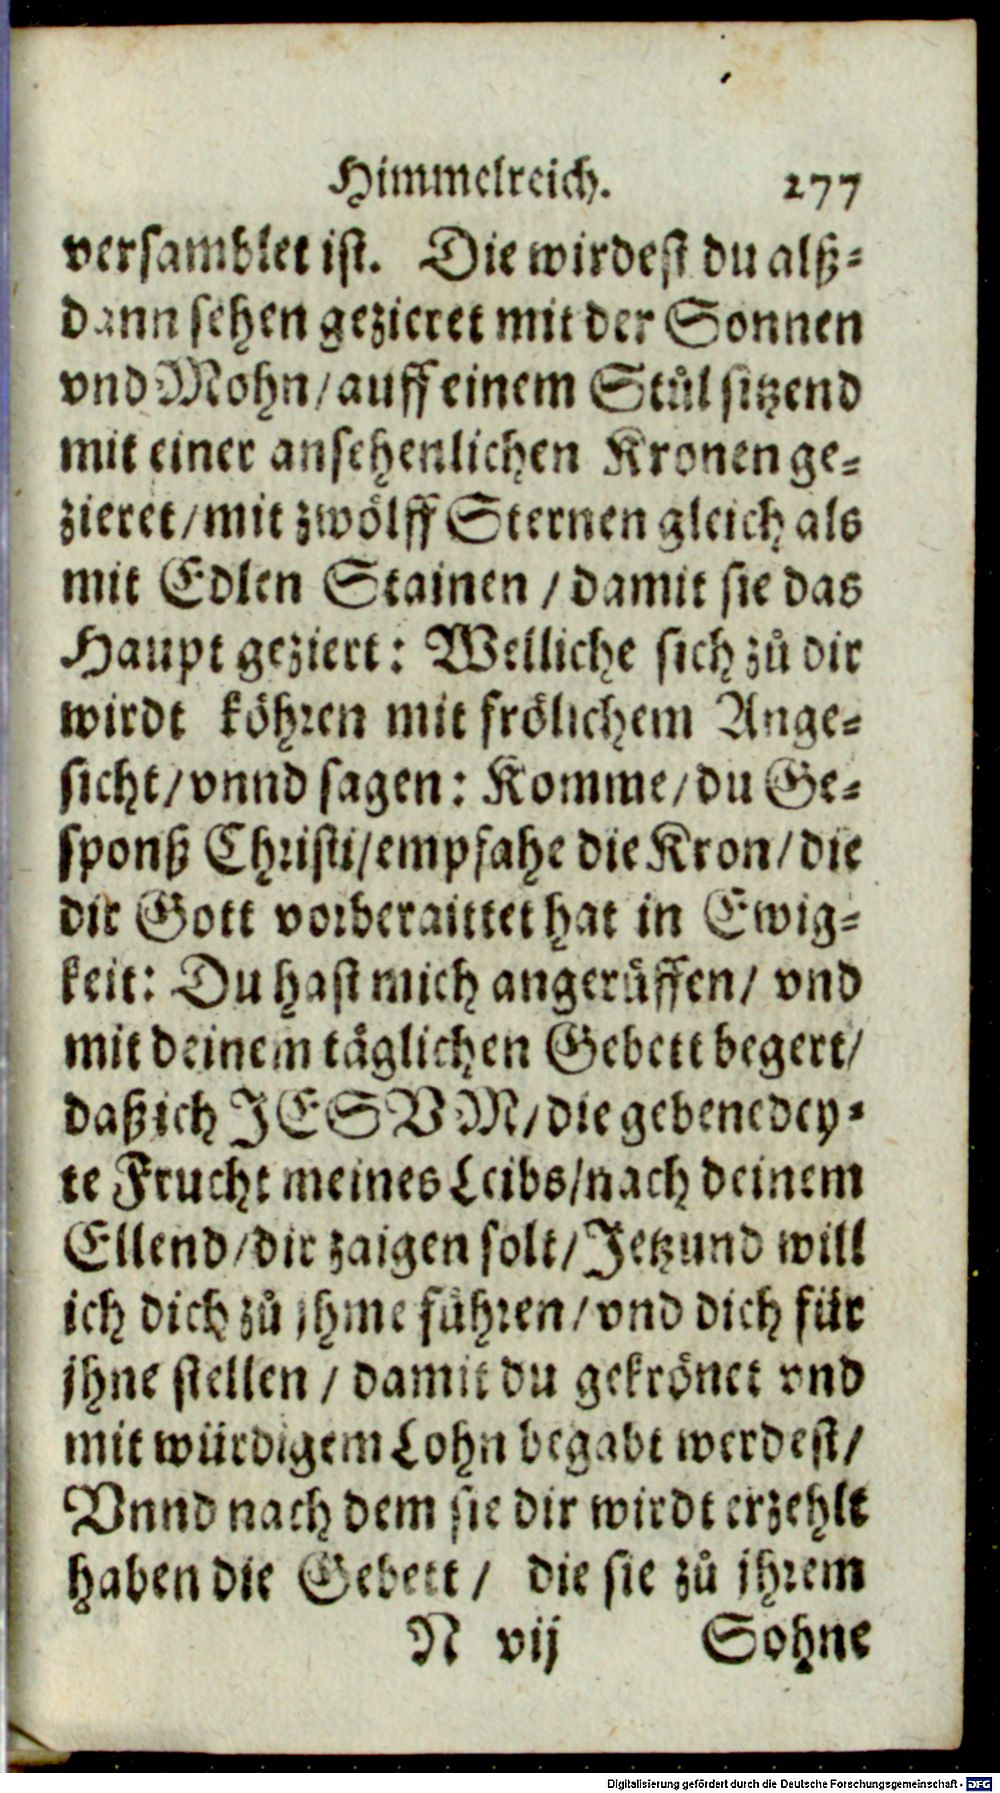 Himmelreich. 277
versamblet ist. Die wirdest du alß-
dann sehen gezieret mit der Sonnen
vnd Mohn/ auff einem Stůl sitzend
mit einer ansehenlichen Kronen ge-
zieret/ mit zwölff Sternen gleich als
mit Edlen Stainen / damit sie das
Haupt geziert: Welliche sich zů dir
wirdt köhren mit frölichem Ange-
sicht/ vnnd sagen: Komme/ du Ge-
sponß Christi/ empfahe die Kron/ die
dir Gott vorberaittet hat in Ewig-
keit: Du hast mich angerůffen/ vnd
mit deinem täglichen Gebett begert/
daß ich JESVM/ die gebenedey-
te Frucht meines Leibs/ nach deinem
Ellend/ dir zaigen solt/ Jetzund will
ich dich zů jhme führen/ vnd dich für
jhne stellen / damit du gekrönet vnd
mit würdigem Lohn begabt werdest/
Vnnd nach dem sie dir wirdt erzehlt
haben die Gebett / die sie zů jhrem
N vij Sohne
Digitalisierung gefördert durch die Deutsche Forschungsgemeinschaft - DFG